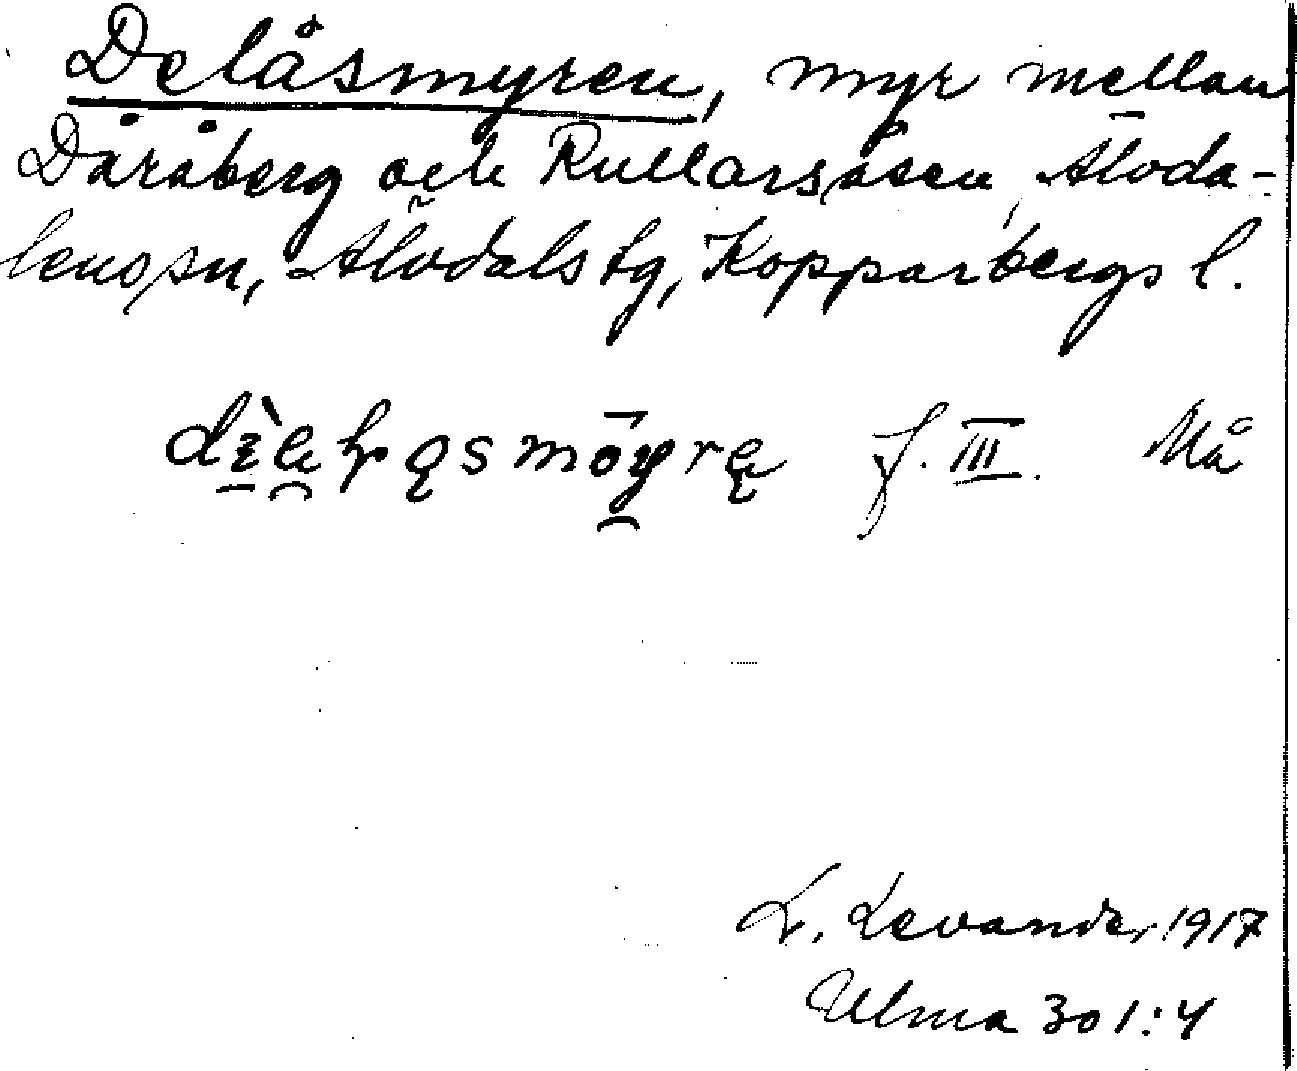 Delåsmyren, myr mellan
Dåråberg och Rullarsåsen, Älvda-
lens sn, Älvdals tg, Kopparbergs l.
f. III. Må
L. Levander 1917
Ulma 301:4